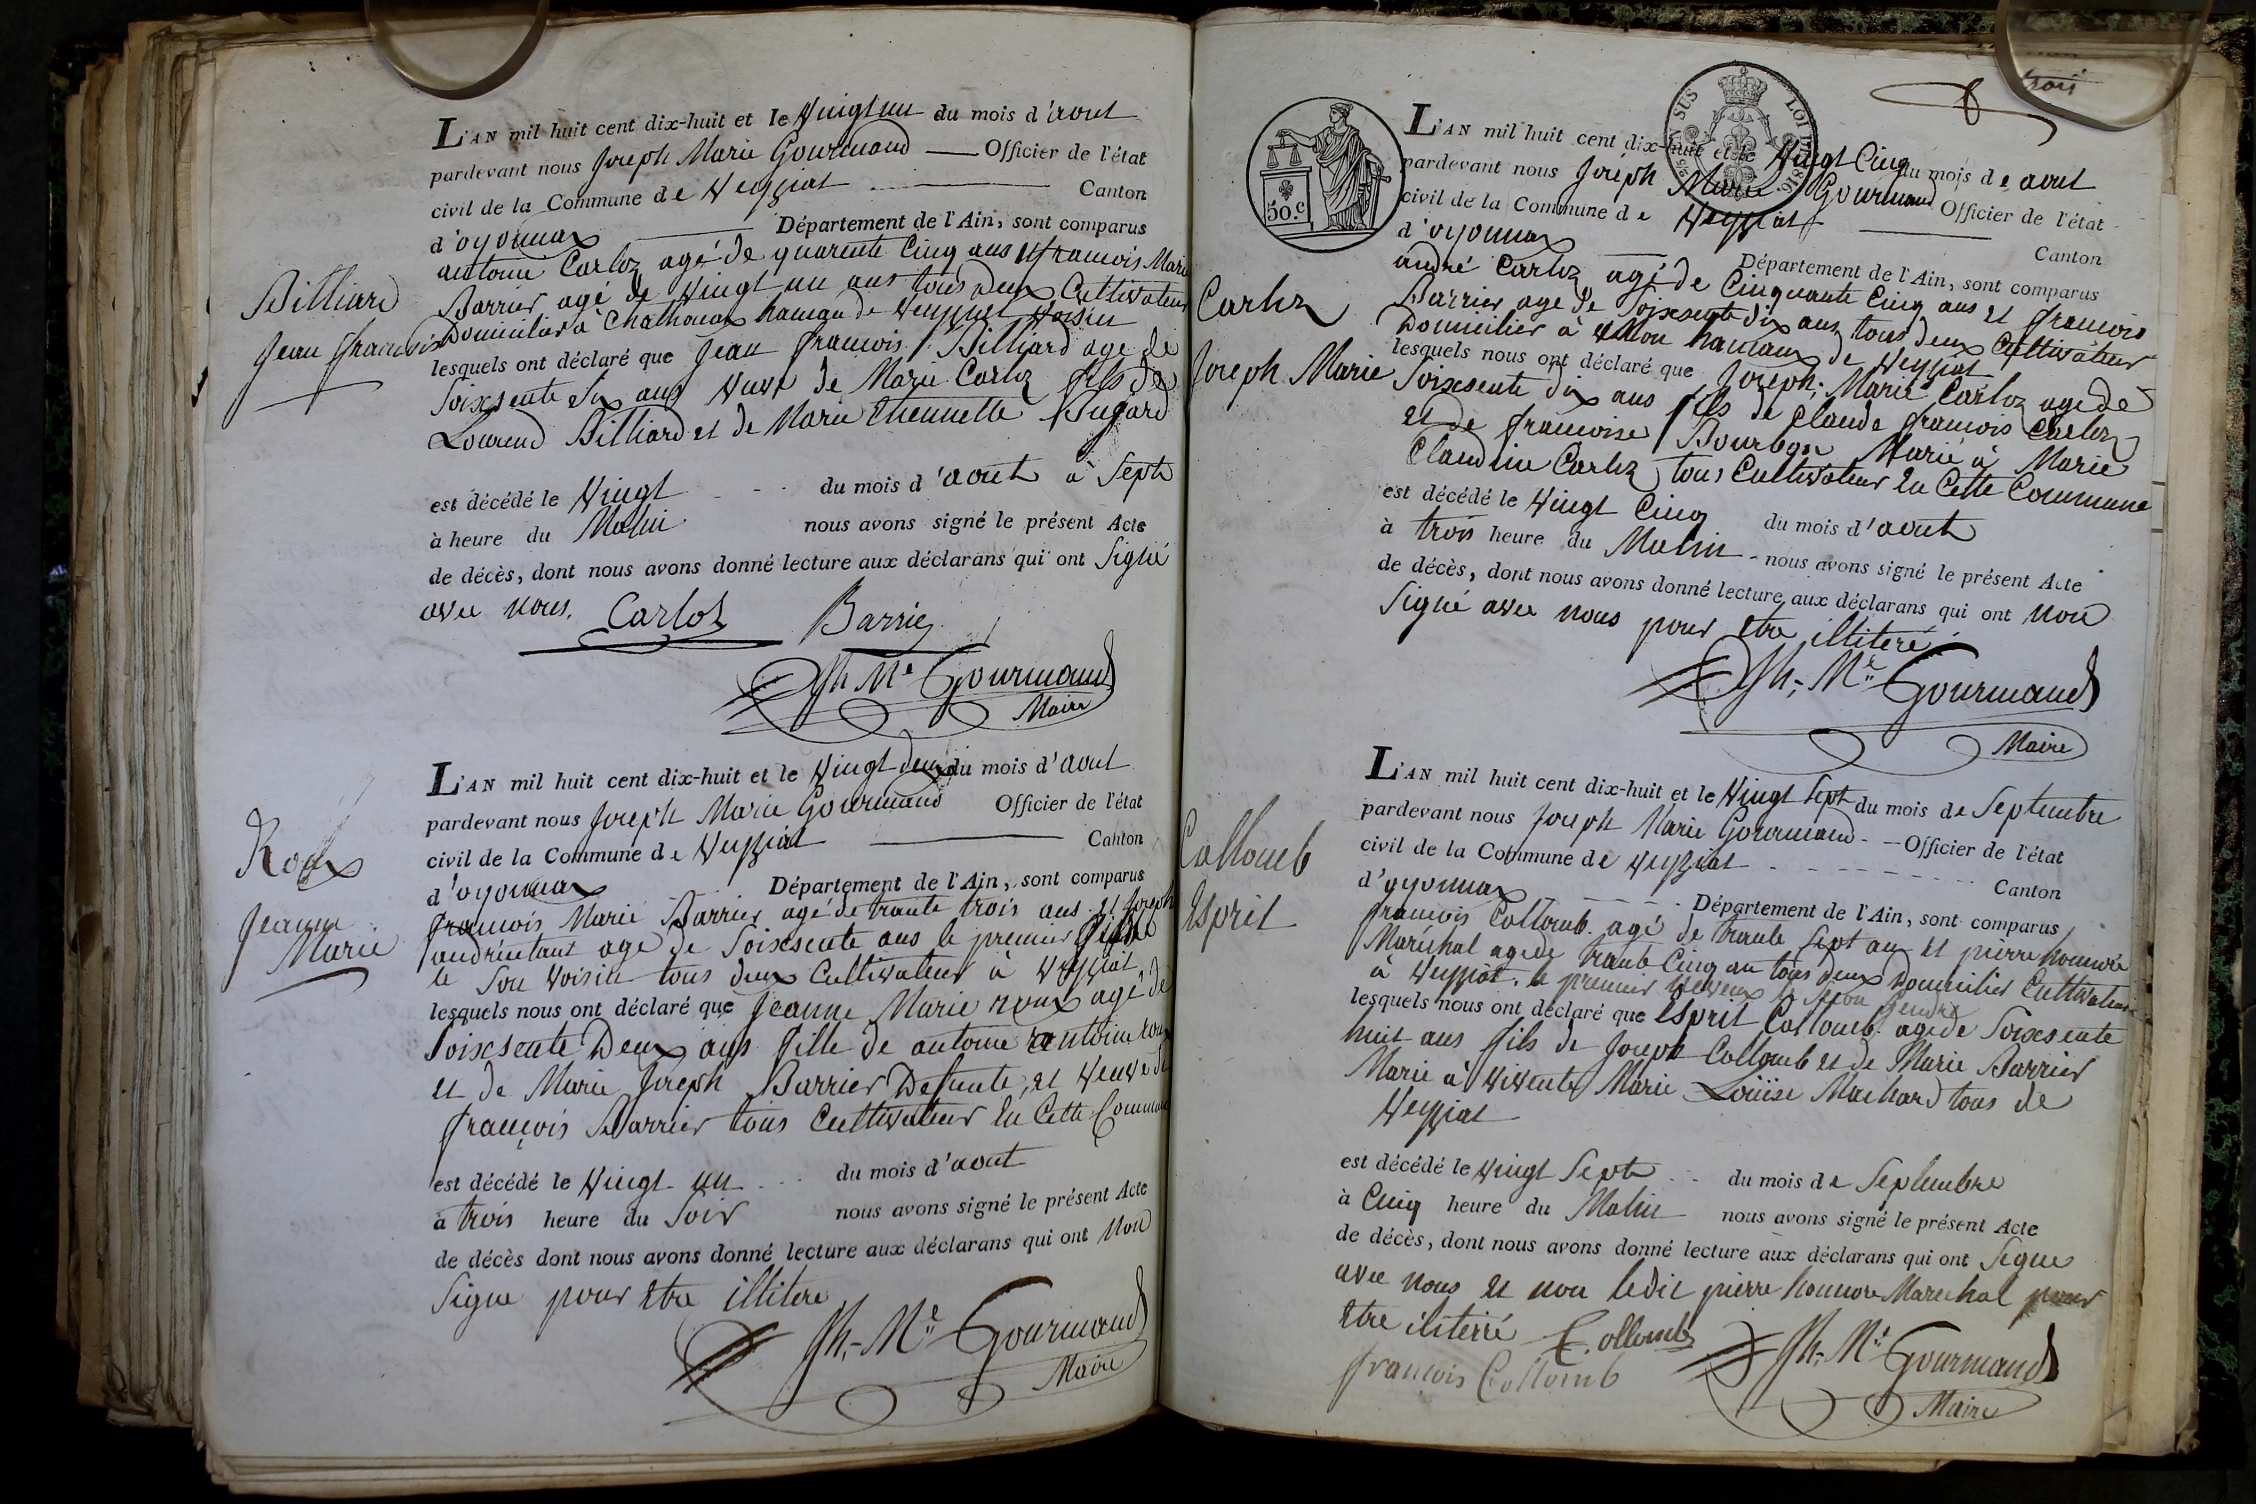 L'AN mil huit cent dix-huit et le Vingt un du mois d'aout
pardevant nous Joseph Marie Gourmand Officier de l'état
civil de la Commune de Veyziat Canton
d'oyonnax Département de l'Ain, sont comparus
antoine Carloz agé de quarente Cinq ans et francois Marie
Barrier agé de Vingt un ans tous deux Cultivateur
Domicilier à Chatonax hamau de Veyziat Voisin
Billiard
Jean francois
lesquels ont déclaré que Jean francois Billiard age de
Soixsente Six ans Veuve de Marie Carloz fils de
Laurend Billiard et de Marie Etiennette Pugard
est décédé le Vingt du mois d'aout à Sept
à heure du Matin nous avons signé le présent Acte
de décès, dont nous avons donné lecture aux déclarans qui ont Signé
avec nous. Carloz Barrier
Jh Me Gourmand
Maire
L'AN mil huit cent dix-huit et le Vingt deux du mois d'aout
pardevant nous Joseph Marie Gourmand Officier de l'état
civil de la Commune de Veyziat Canton
d'oyonnax Département de l'Ain, sont comparus
Roux
Jeanne
Marie
francois Marie Barrier agé de trante trois ans et Joseph
age de Soixsente ans le premier
le Son Voisin tous deux Cultivateur à Veyziat
lesquels nous ont déclaré que Jeanne Marie roux agé de
Soixsente Deux ans fille de antoine antoine roux
et de Marie Joseph Barrier Defunte, et Veuve de
françois Barrier tous Cultivateur En Cette Commune
est décédé le Vingt un du mois d'aout
à trois heure du Soir nous avons signé le présent Acte
de décès dont nous avons donné lecture aux déclarans qui ont Non
Signe pour Etre illitere
Jh.-Me Gourmand
Maire
trois
50.c
L'AN mil huit cent dix-huit et le Vingt Cinq du mois de aout
pardevant nous Joseph Marie Gourmand Officier de l'état
civil de la Commune de Veyziat Canton
d'oyonnax Département de l'Ain, sont comparus
andré Carloz agé de Cinquante Cinq ans et francois
Barrier age de Soixsente dix ans tous deux Cultivateur
Domicilier à hamaux de Veyziat
Carloz
Joseph Marie
lesquels nous ont déclaré que Joseph, Marie Carloz age de
Soixsente dix ans fils de Claude francois Carloz
et de francoise Bourbon Marié à Marie
Claudine Carloz tous Cultivateur En Cette Commune
est décédé le Vingt Cinq du mois d'aout
à trois heure du Matin nous avons signé le présent Acte
de décès, dont nous avons donné lecture aux déclarans qui ont Non
Signé avec nous pour Etre illiteré
Jh.-Me Gourmand
Maire
L'AN mil huit cent dix-huit et le Vingt Sept du mois de Septembre
pardevant nous Joseph Marie Gourmand Officier de l'état
civil de la Commune de Veyziat Canton
d'oyonnax Département de l'Ain, sont comparus
Collomb
Esprit
francois Collomb agé de trante Sept an et pierre honnoré
Maréchal age de trante Cinq an tous deux Domicilier Cultivateur
à Veyziat. le premier neveux le Segon Gendre
lesquels nous ont déclaré que Esprit Collomb age de Soixsente
huit ans fils de Joseph Collomb et de Marie Barrier
Marié à Vivente Marie Louise Machard tous de
Veyziat
est décédé le Vingt Sept du mois de Septembre
à Cinq heure du Matin nous avons signé le présent Acte
de décès, dont nous avons donné lecture aux déclarans qui ont Signe
avec nous et non ledit pierre honnore Marechal pour
Etre iliterré C. ollomb
francois Collomb
Jh.-Me Gourmand
Maire